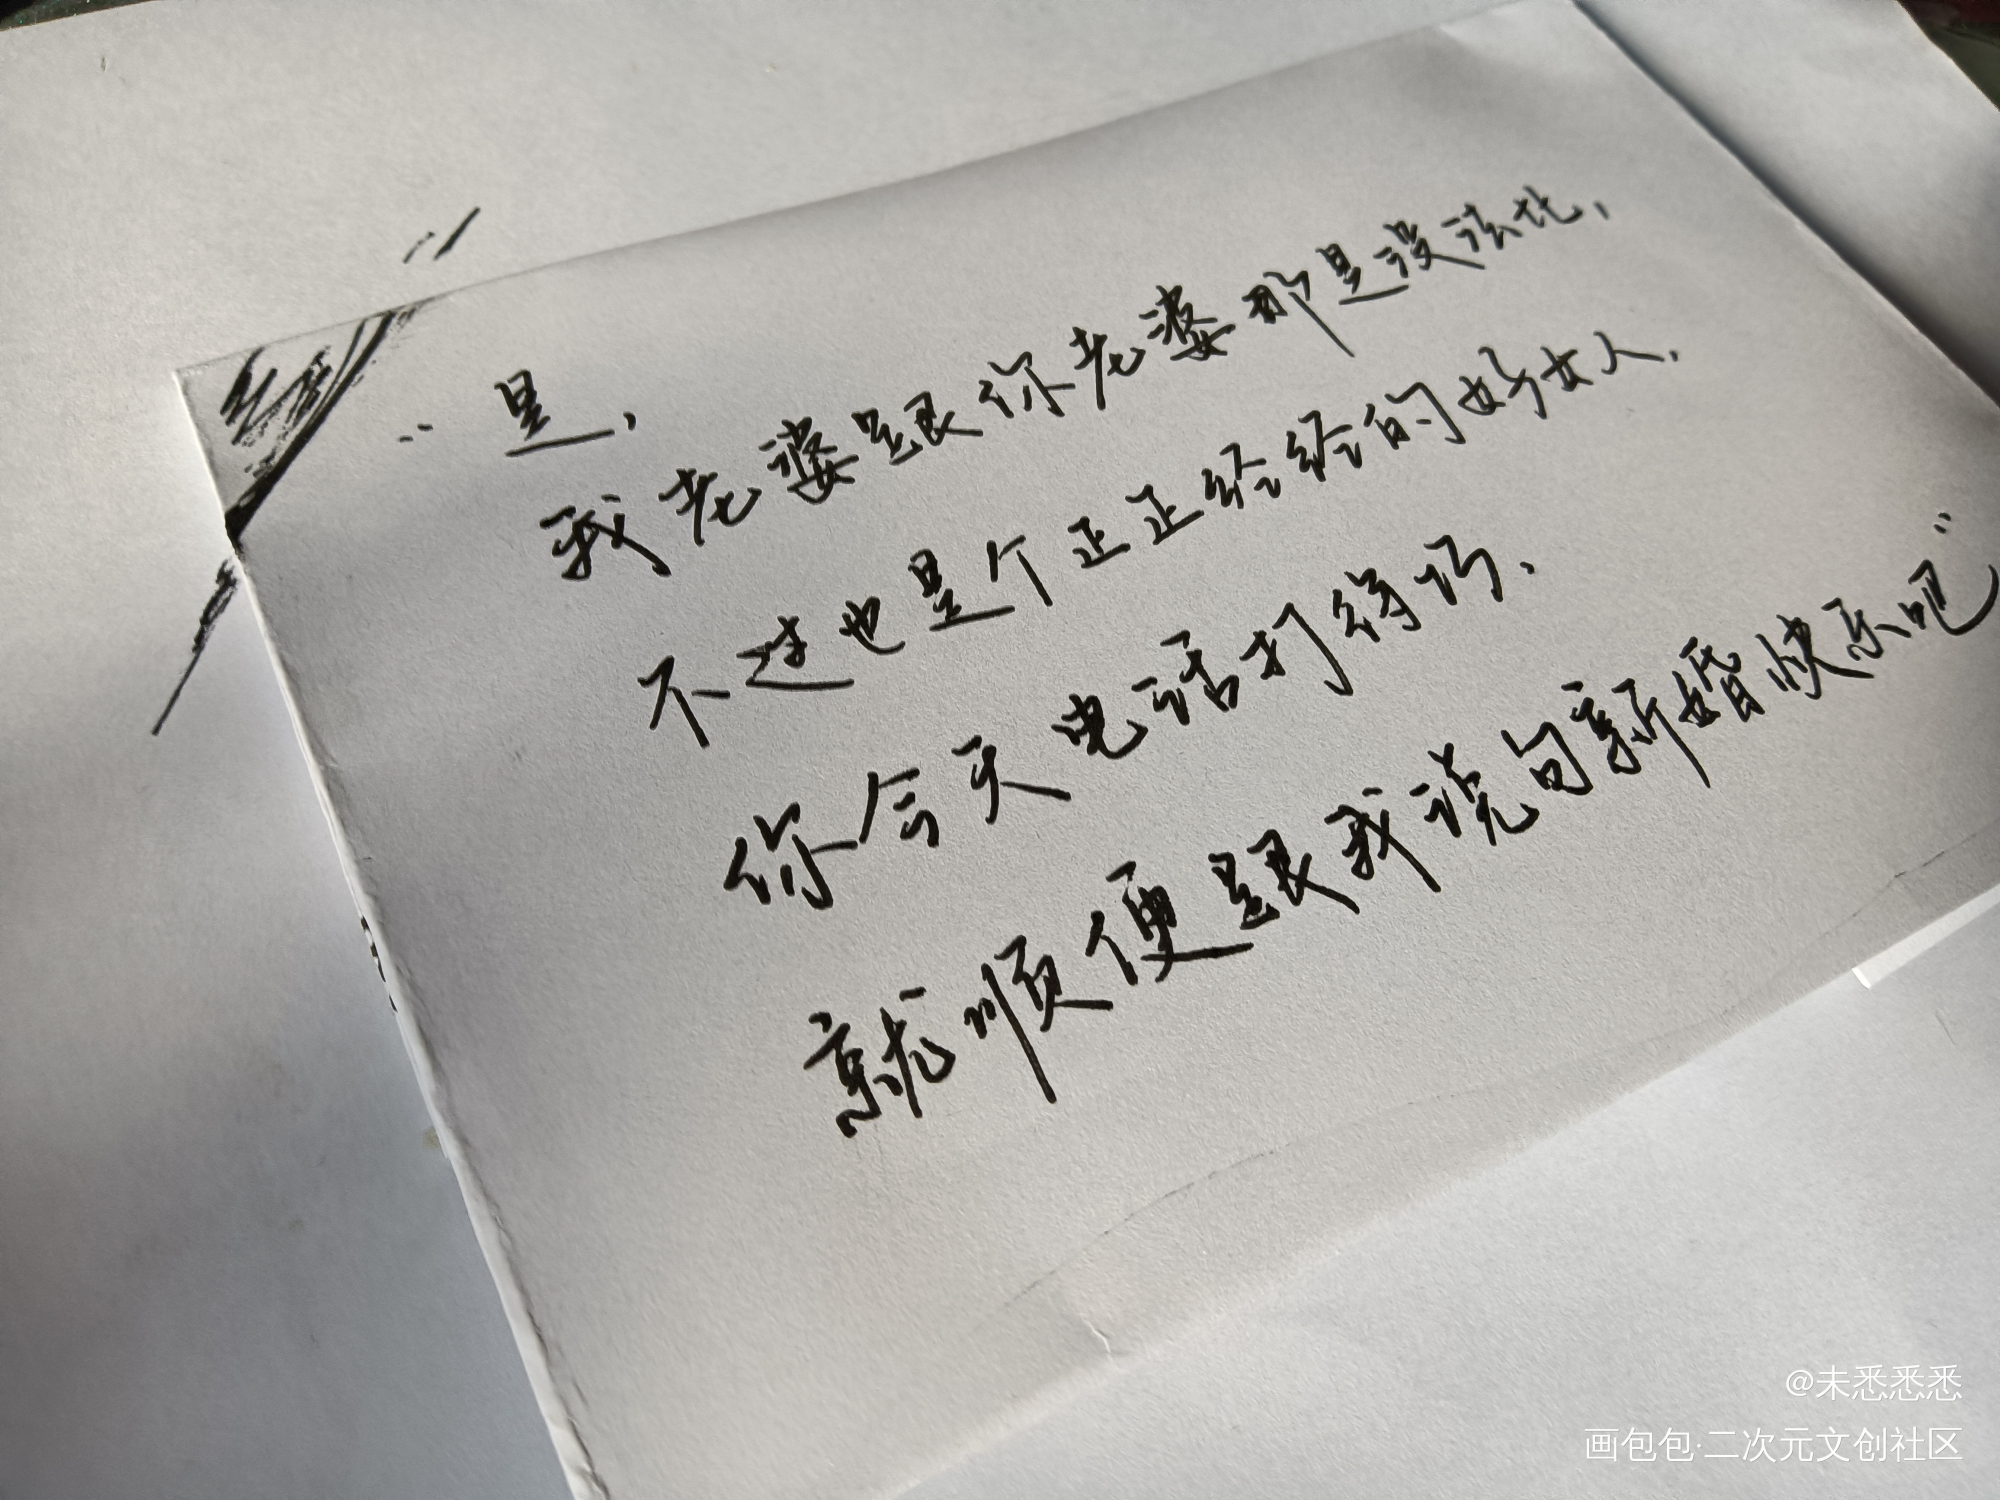 “是，
我老婆跟你老婆那是没法比，
不过也是个正正经经的好女人.
你今天电话打得巧.
就顺便跟我说句新婚快乐吧”
@未悉悉悉
画包包·二次元文创社区